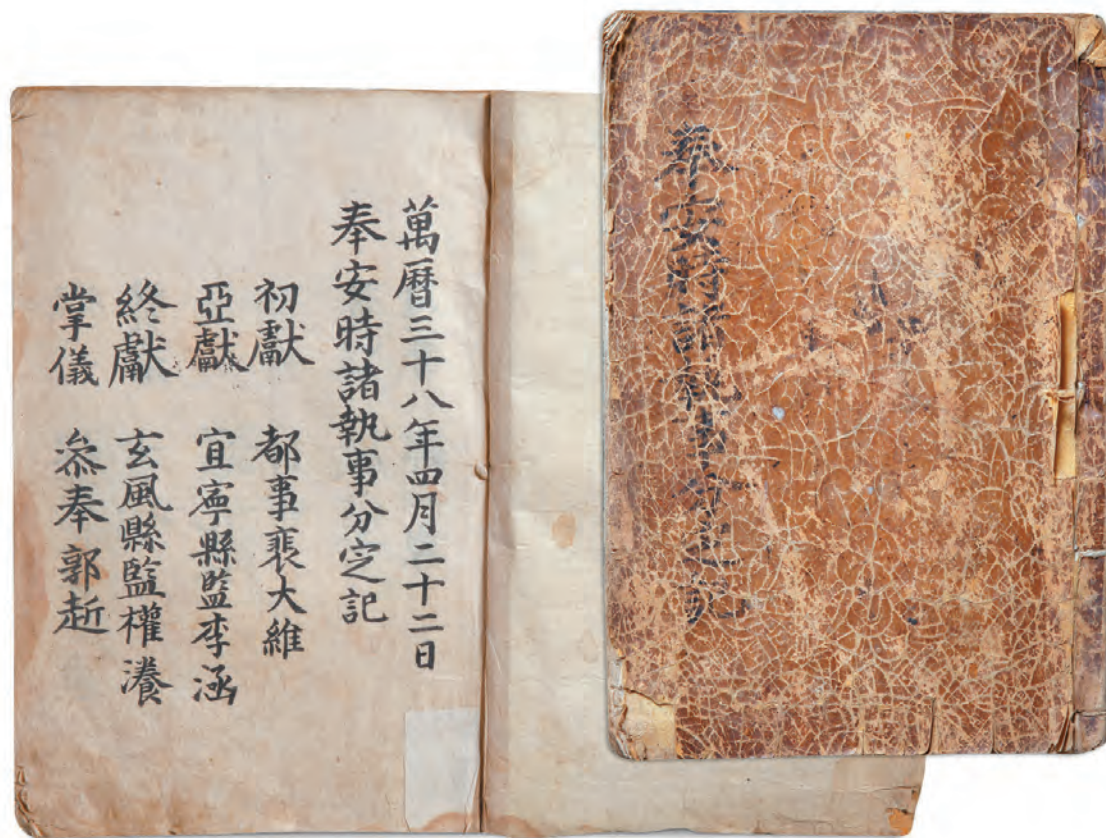 奉安時諸執事分㝎記
萬曆三十八年四月二十二日
奉安時諸執事分㝎記
初獻 都事裵大維
亞獻 宜寧縣監李涵
終獻 玄風縣監權瀁
掌儀 叅奉郭赾